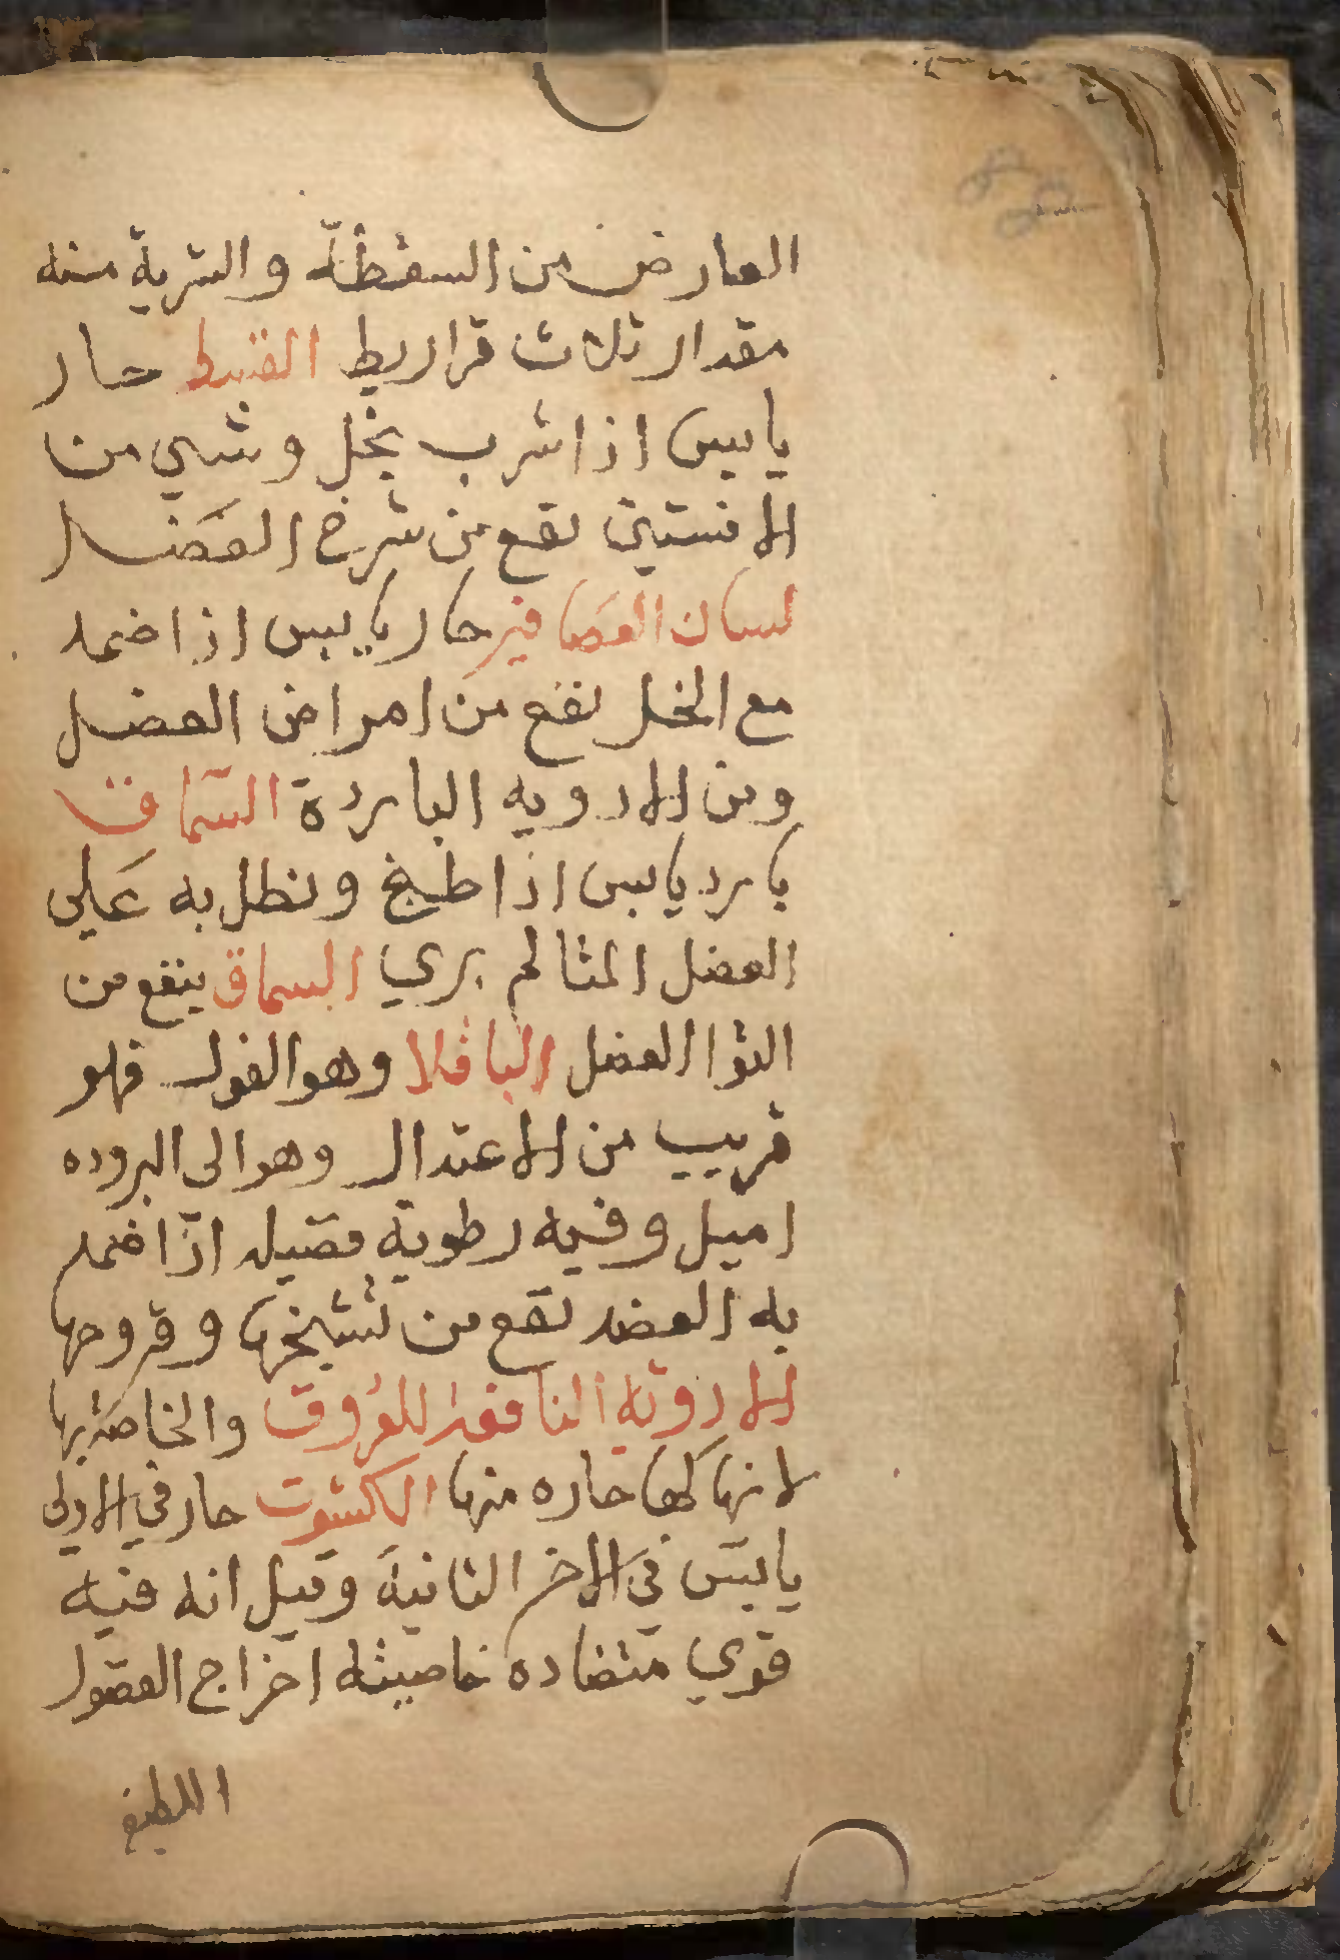 العارض من السقطة والشربة منه
مقدار ثلاث قراريط القنبيط حار
يابس اذا شرب بخل وشي من
الافستين نفع من شرخ العضل
لسان العصافير حار يابس اذا ضمد
مع الخل نفع من امراض العضل
ومن الادويه الباردة السماق
بارد يابس اذا طبخ ونطل به علي
العضل المتالم بري السماق ينفع من
التوا العضل الباقلا وهو الفول فهو
قريب من الاعتدال وهو الى البروده
اميل وفيه رطوبة فضيله اذا ضمد
به العضد نفع من تشيخها وقروحها
الادوية النافعة للعروق والخاصة بها
لانها كلها حاره منها الكشوت حار في الاولى
يابس في الاخر الثانية وقيل انه فيه
قوي متضاده خاصيته اخراج الفضول
اللطيفه